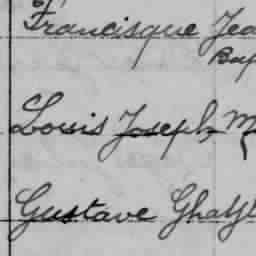 Francisque Jea
Bap
Louis Joseph M
Gustave